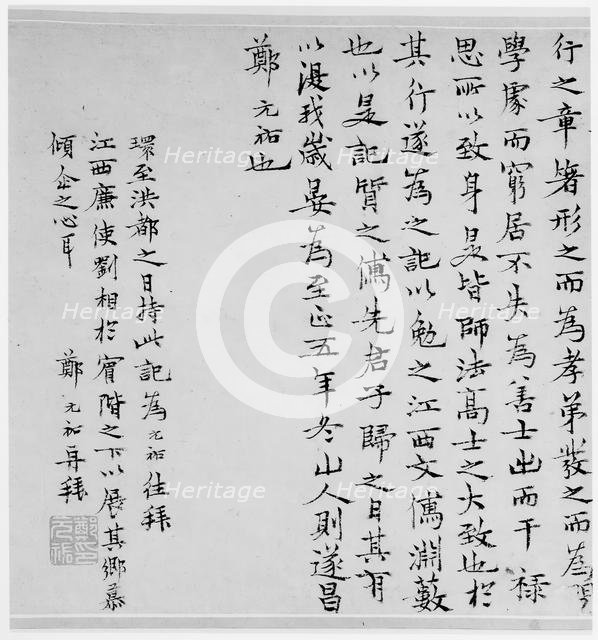 行之章箸形之而為孝弟發之而為
學處而窮居不失為善士出而干祿
思所以致身是皆師法高士之大致也於
其行遂為之記以勉之江西文儒淵藪
也以是記質之儒先君子歸之日其有
以湿我歲晏為至正五年冬山人則遂昌
鄭元祐也
環至洪都之日持此記為元祐往拜
江西廉使劉相於賓階之下以展其鄉慕
傾企之心耳
鄭元祐再拜
鄭元祐印
Heritage
Heritage
Heritage
Heritage
Heritage
Heritage
Heritage
Heritage